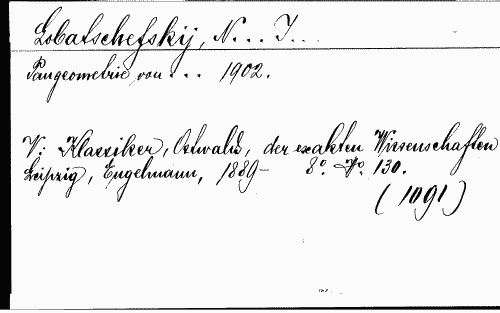 Lobatschefskij, N... I...
Pangeometrie von... 1902.
V: Klassiker, Ostwald, der exakten Wissenschaften
Leipzig, Engelmann, 1889- 8° No. 130.
(1091)